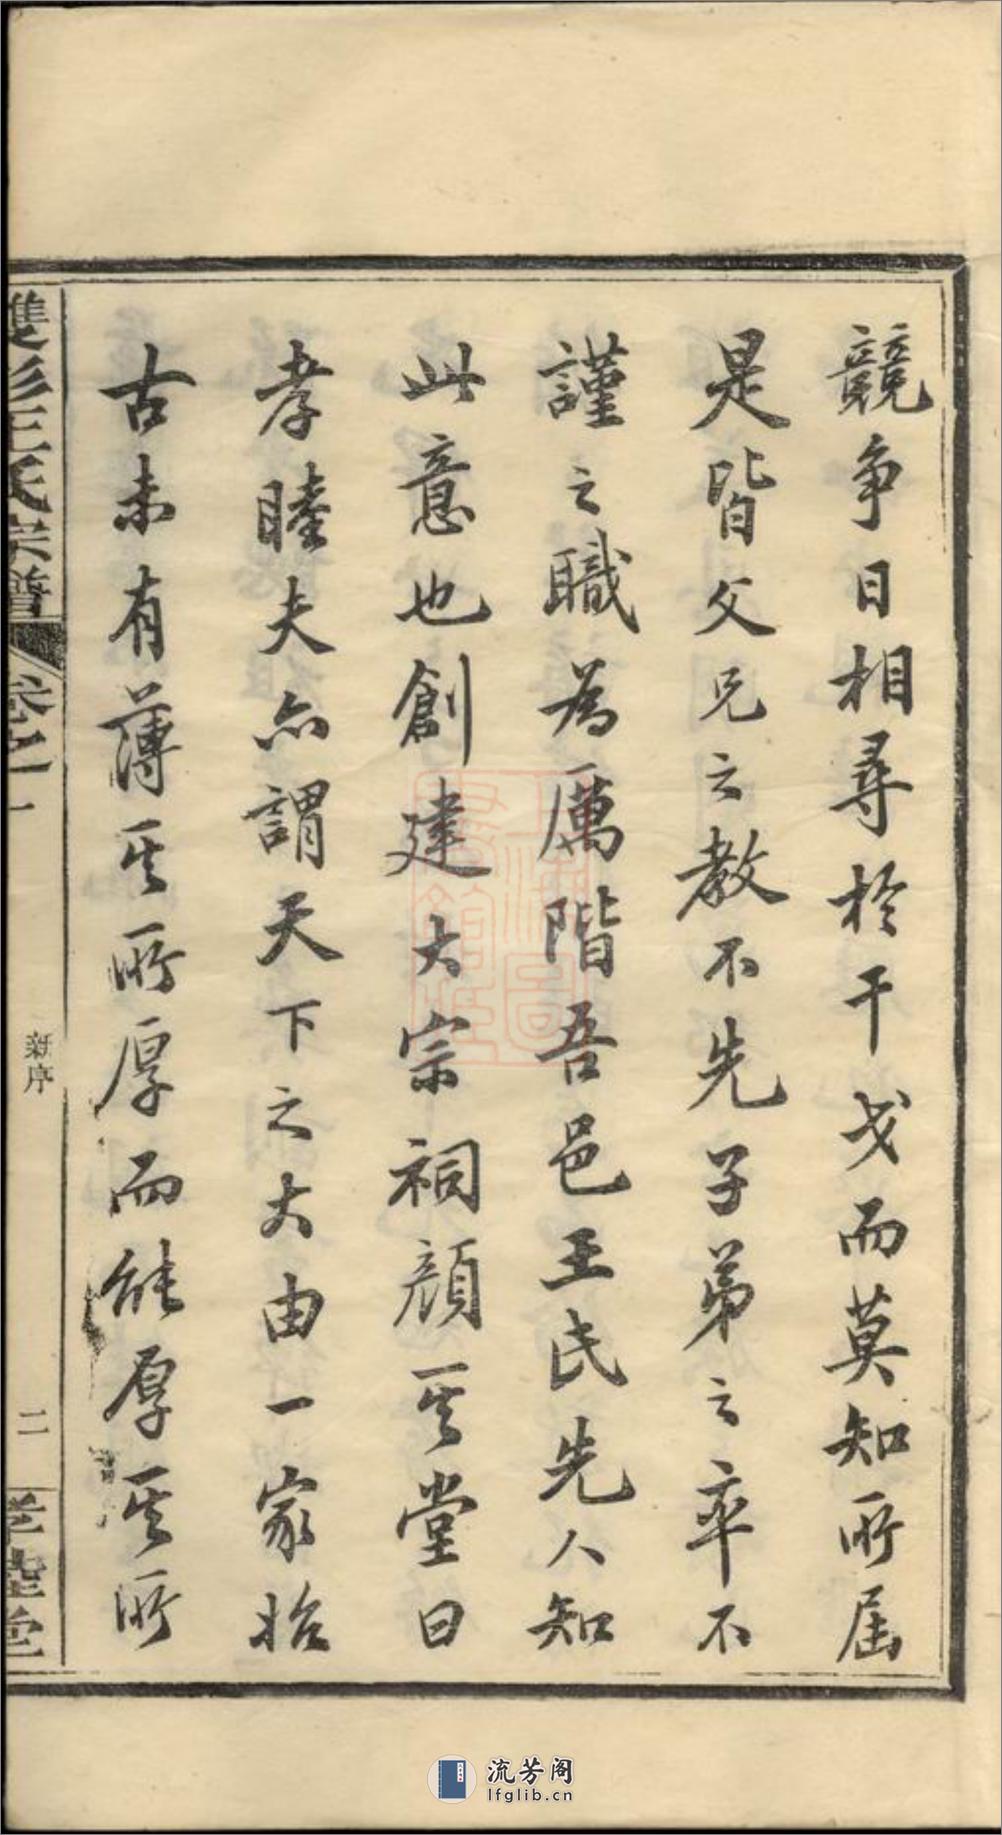 競爭日相尋於干戈而莫知所屆
是皆父兄之教不先子弟之率不
謹之職為厲階吾邑王氏先人知
此意也創建大宗祠顏其堂曰
孝睦夫亦謂天下之大由一家始
古未有薄其所厚而能厚其所
雙杉王氏宗譜
卷之一
新序
二
孝睦堂
上海圖書館藏
流芳阁
lfglib.cn